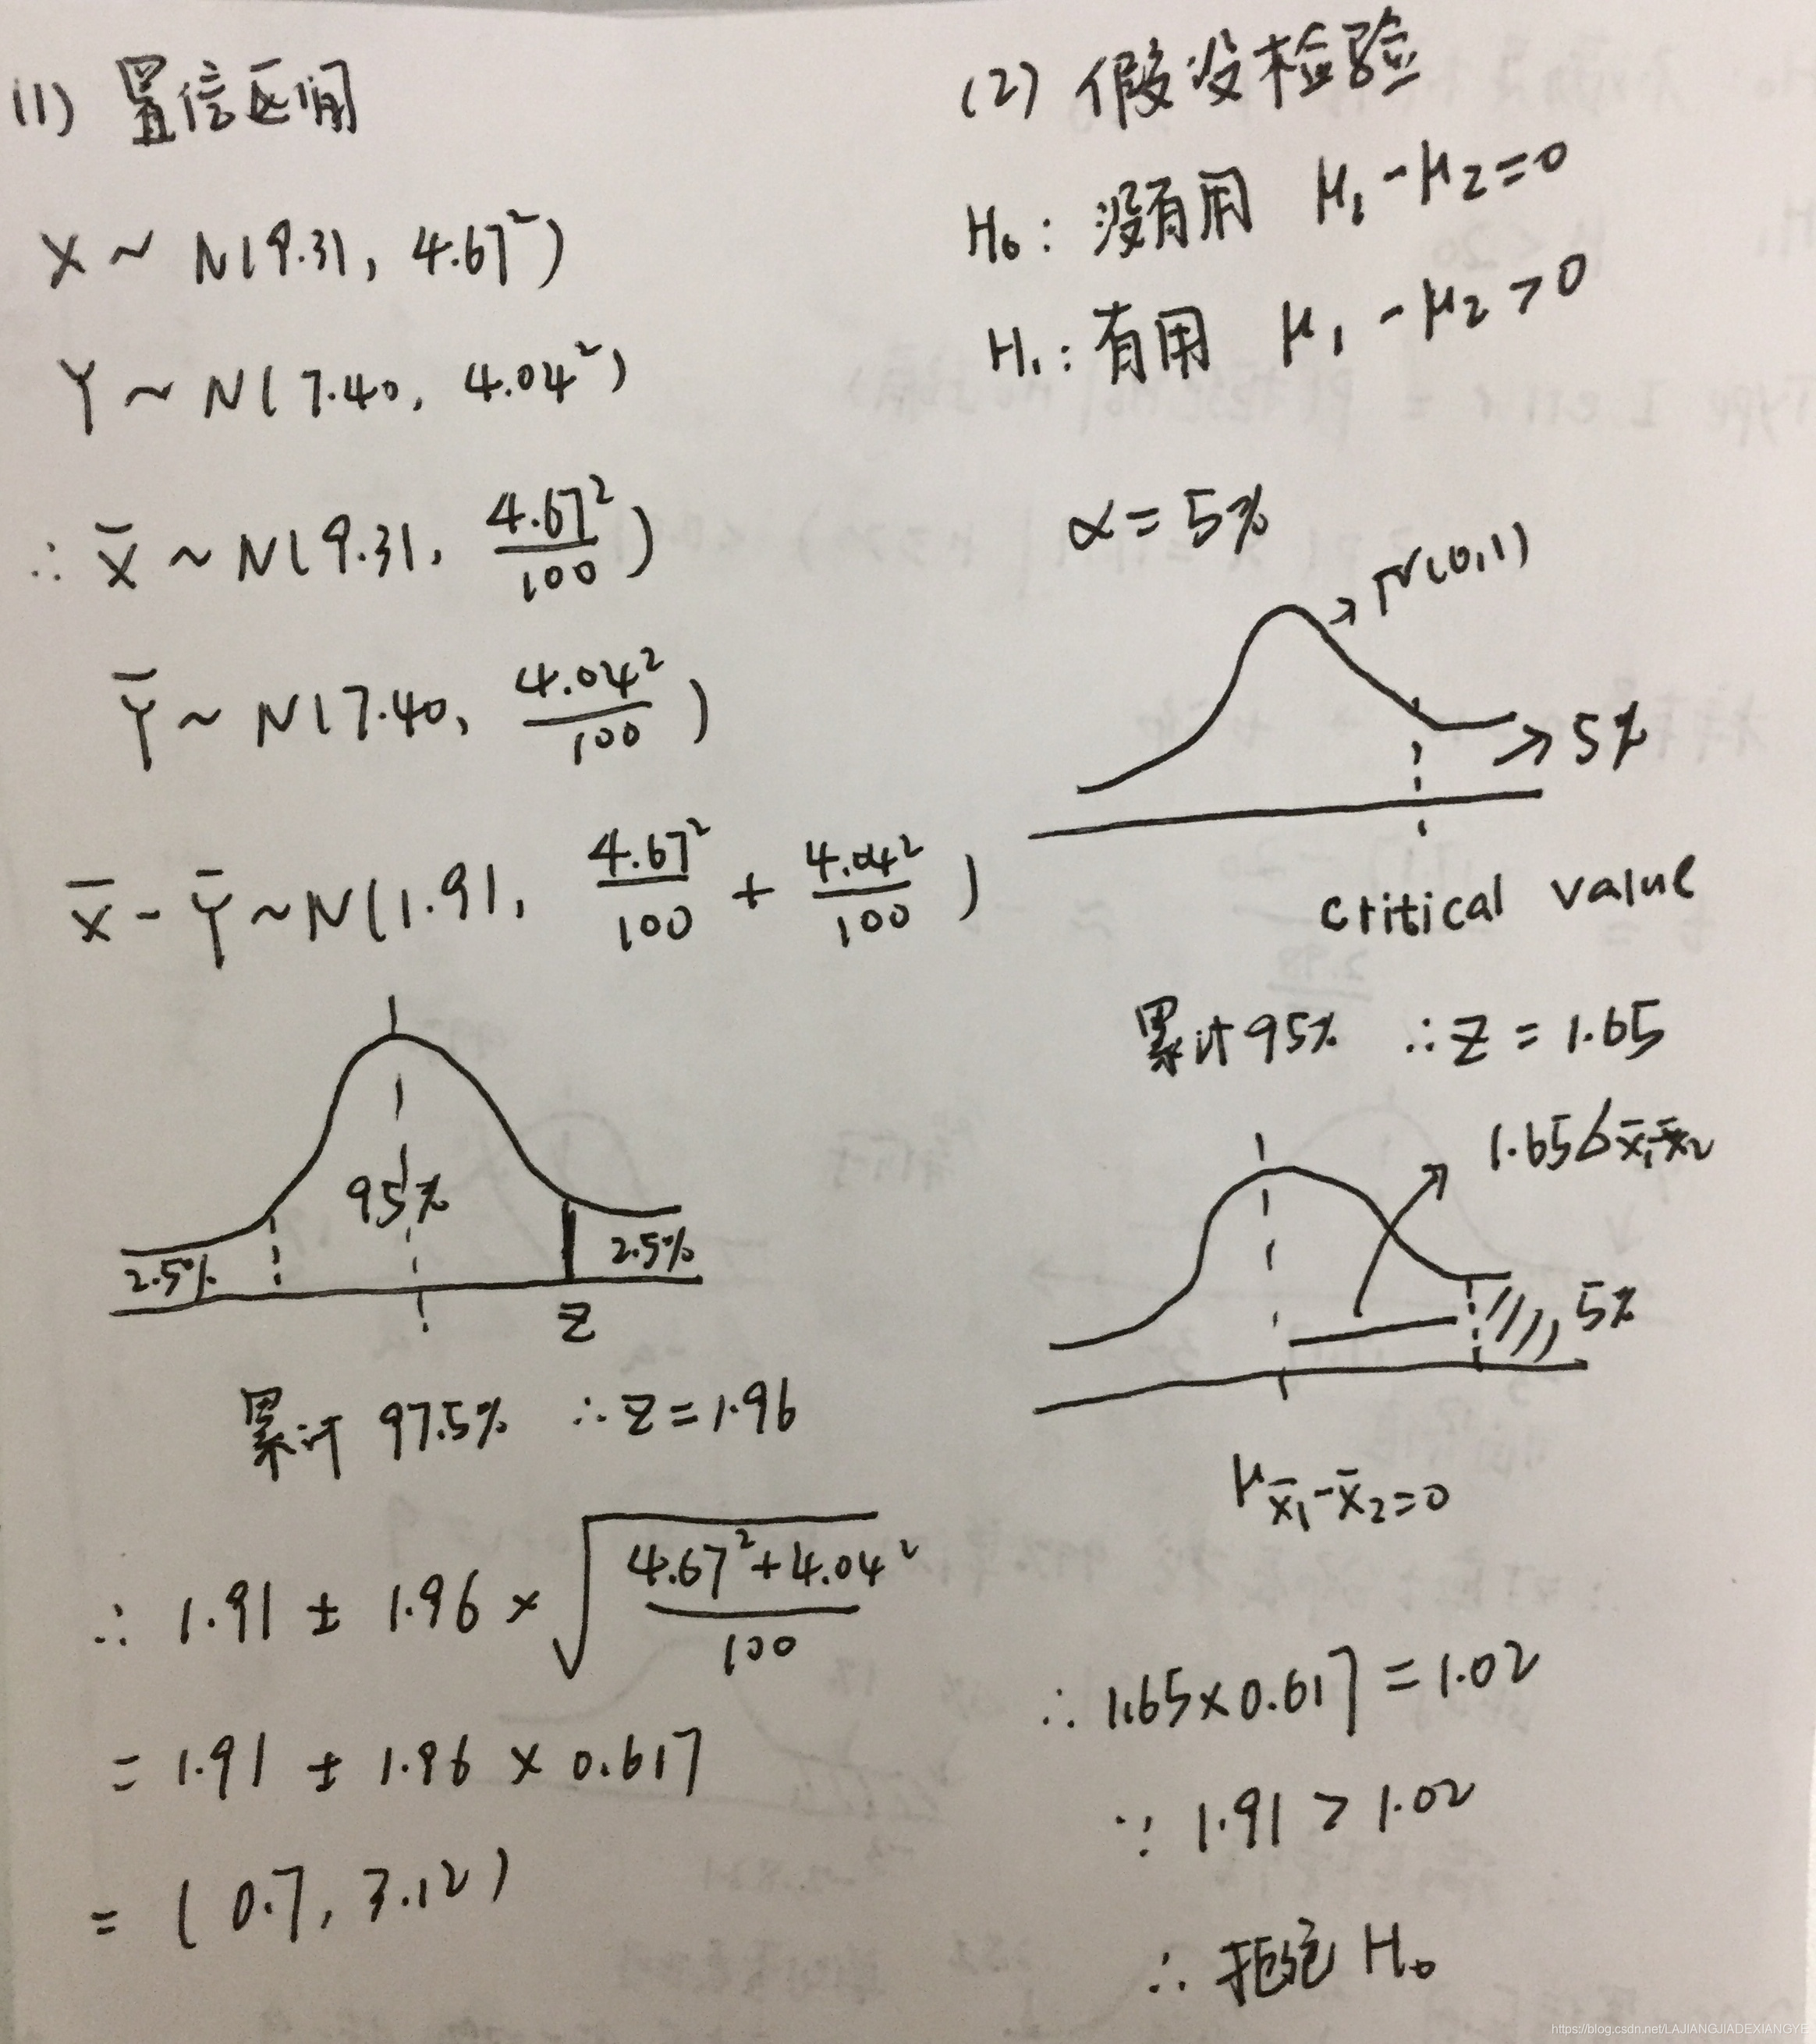 (1) 置信区间
X ~ N(9.31, 4.67²)
Y ~ N(7.40, 4.04²)
∴ X̄ ~ N(9.31, 4.67²/100)
Ȳ ~ N(7.40, 4.04²/100)
X̄ - Ȳ ~ N(1.91, 4.67²/100 + 4.04²/100)
95%
2.5%
2.5%
Z
累计 97.5% ∴ Z = 1.96
∴ 1.91 ± 1.96 × √((4.67² + 4.04²)/100)
= 1.91 ± 1.96 × 0.617
= (0.7, 3.12)
(2) 假设检验
H₀: 没有用 μ₁ - μ₂ = 0
H₁: 有用 μ₁ - μ₂ > 0
α = 5%
N(0,1)
5%
critical value
累计 95% ∴ Z = 1.65
1.65σx̄₁-x̄₂
5%
μx̄₁-x̄₂=0
∴ 1.65 × 0.617 = 1.02
∵ 1.91 > 1.02
∴ 拒绝 H₀
https://blog.csdn.net/LAJIANGJIADEXIANGYE